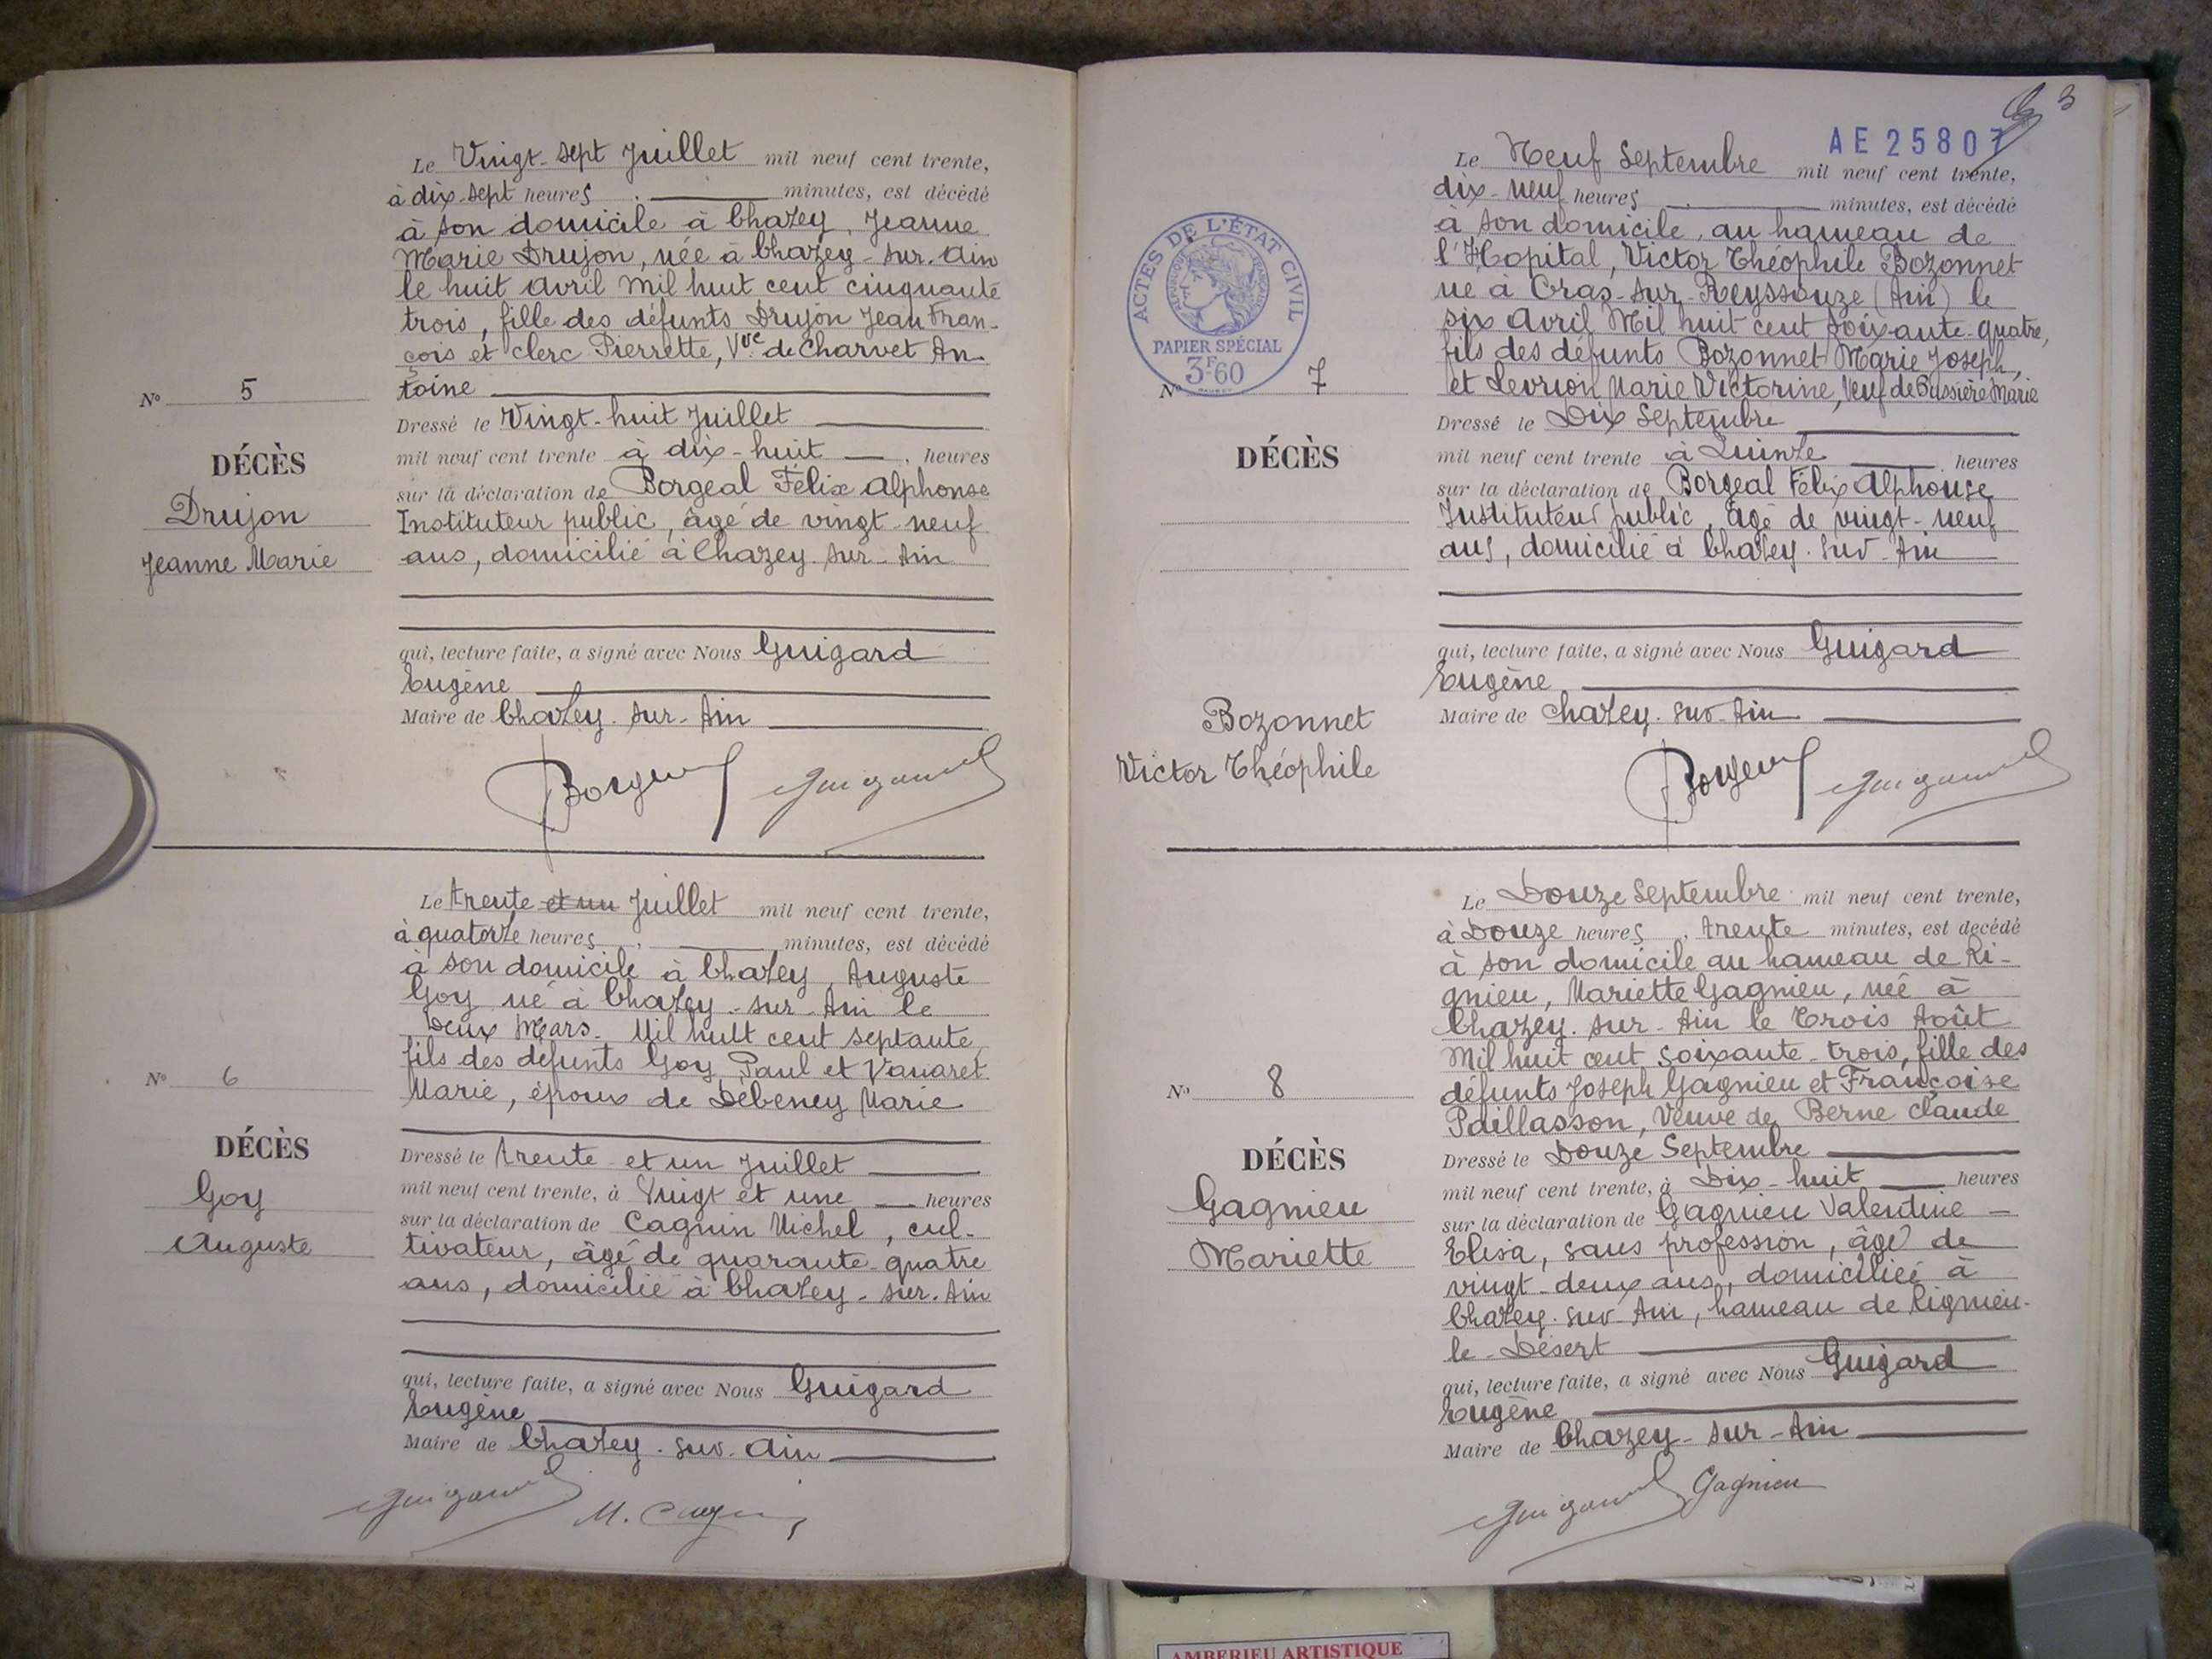 Le Vingt-sept Juillet mil neuf cent trente,
à dix-sept heures . minutes, est décédé
à son domicile à Chazey, Jeanne
Marie Drujon, née à Chazey-sur-Ain
le huit Avril mil huit cent cinquante
trois, fille des défunts Drujon Jean Fran-
çois et Clerc Pierrette, Vve de Charvet An-
toine
N° 5
DÉCÈS
Drujon
Jeanne Marie
Dressé le Vingt-huit Juillet
mil neuf cent trente à dix-huit , heures
sur la déclaration de Borgeal Félix Alphonse
Instituteur public, âgé de vingt-neuf
ans, domicilié à Chazey-sur-Ain
qui, lecture faite, a signé avec Nous Guigard
Eugène
Maire de Chazey-sur-Ain
Le trente et un Juillet mil neuf cent trente,
à quatorze heures , minutes, est décédé
à son domicile à Chazey, Auguste
Goy né à Chazey-sur-Ain le
Deux Mars Mil huit cent septante,
fils des défunts Goy Paul et Vanaret
Marie, époux de Débeney Marie
N° 6
DÉCÈS
Goy
Auguste
Dressé le trente et un Juillet
mil neuf cent trente, à Vingt et une heures
sur la déclaration de Cagnin Michel, cul-
tivateur, âgé de quarante-quatre
ans, domicilié à Chazey-sur-Ain
qui, lecture faite, a signé avec Nous Guigard
Eugène
Maire de Chazey-sur-Ain
3
AE 25807
Le Neuf Septembre mil neuf cent trente,
dix-neuf heures . minutes, est décédé
à son domicile, au hameau de
l'Hopital, Victor Théophile Bozonnet
né à Cras-sur-Reyssouze (Ain) le
six Avril Mil huit cent soixante-quatre,
fils des défunts Bozonnet Marie Joseph,
et Levrion Marie Victorine, Veuf de Bussière Marie
ACTES DE L'ÉTAT CIVIL
RÉPUBLIQUE FRANÇAISE
PAPIER SPÉCIAL
3F60
N° 7
DÉCÈS
Bozonnet
Victor Théophile
Dressé le Dix Septembre
mil neuf cent trente à Quinze , heures
sur la déclaration de Borgeal Félix Alphonse
Instituteur public, âgé de vingt-neuf
ans, domicilié à Chazey-sur-Ain
qui, lecture faite, a signé avec Nous Guigard
Eugène
Maire de Chazey-sur-Ain
Le Douze Septembre mil neuf cent trente,
à Douze heures , trente minutes, est décédé
à son domicile au hameau de Ri-
gnieu, Mariette Gagnieu, née à
Chazey-sur-Ain le Trois Août
Mil huit cent soixante-trois, fille des
défunts Joseph Gagnieu et Françoise
Paillasson, Veuve de Berne Claude
N° 8
DÉCÈS
Gagnieu
Mariette
Dressé le Douze Septembre
mil neuf cent trente, à Dix-huit heures
sur la déclaration de Gagnieu Valentine
Elisa, sans profession, âgé de
vingt-deux ans, domiciliée à
Chazey-sur-Ain, hameau de Rignieu-
le-Désert
qui, lecture faite, a signé avec Nous Guigard
Eugène
Maire de Chazey-sur-Ain
Gagnieu
AMBERIEU ARTISTIQUE